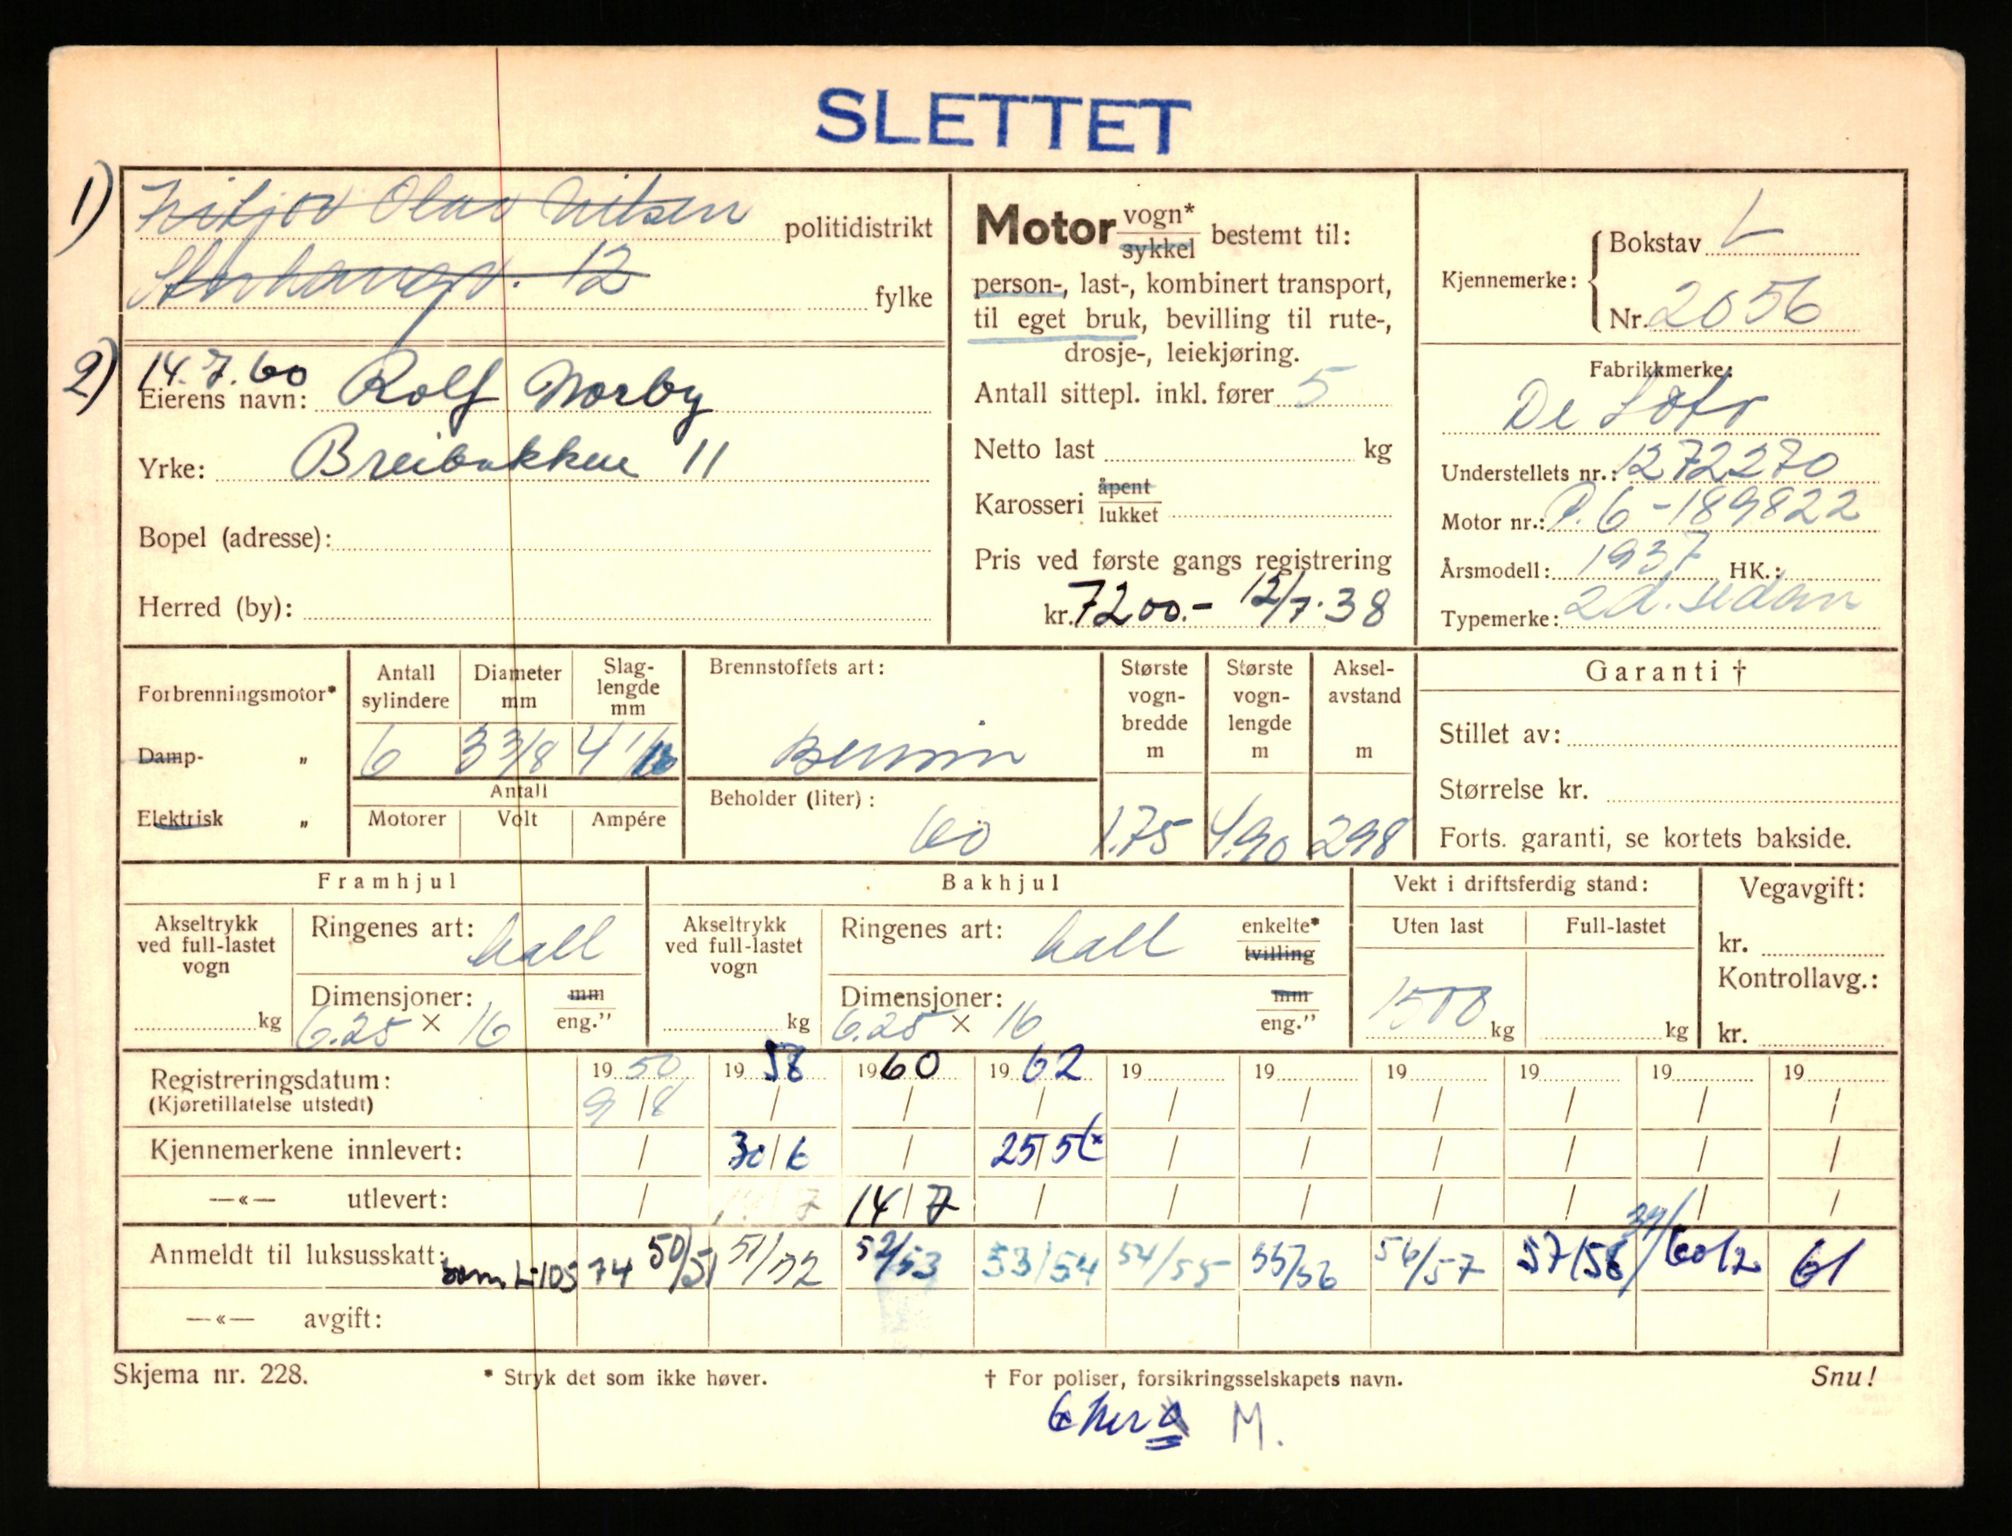 SLETTET
1) Fritjov Olav Nilsen politidistrikt
12 fylke
2) 14.7.60
Eierens navn: Rolf Norby
Yrke: Breibakken 11
Bopel (adresse):
Herred (by):
Motor vogn* sykkel bestemt til:
person-, last-, kombinert transport,
til eget bruk, bevilling til rute-,
drosje-, leiekjøring.
Antall sittepl. inkl. fører 5
Netto last kg
Karosseri åpent lukket
Pris ved første gangs registrering
kr. 7200.- 12/7.38
Kjennemerke: Bokstav L
Nr. 2056
Fabrikkmerke:
De Soto
Understellets nr.: 1272270
Motor nr.: P.6-189822
Årsmodell: 1937 HK.:
Typemerke: 2d. sedan
Forbrenningsmotor*
Damp- „
Elektrisk „
Antall sylindere Diameter mm Slag-lengde mm
6 3 3/8 4 1/16
Antall
Motorer Volt Ampére
Brennstoffets art:
Bensin
Beholder (liter):
60
Største vogn-bredde m 1.75
Største vogn-lengde m 4.90
Aksel-avstand m 298
Garanti †
Stillet av:
Størrelse kr.
Forts. garanti, se kortets bakside.
Framhjul
Akseltrykk ved full-lastet vogn kg
Ringenes art: hall
Dimensjoner: mm
6.25 × 16 eng."
Bakhjul
Akseltrykk ved full-lastet vogn kg
Ringenes art: hall enkelte* tvilling
Dimensjoner: mm
6.25 × 16 eng."
Vekt i driftsferdig stand:
Uten last Full-lastet
1500 kg kg
Vegavgift:
kr.
Kontrollavg.:
kr.
Registreringsdatum: 1950 1958 1960 1962 19 19 19 19 19 19
(Kjøretillatelse utstedt) 9/8 / / / / / / / / /
Kjennemerkene innlevert: / 30/6 / 25/5 / / / / / /
—«— utlevert: / 14/7 / / / / / / /
Anmeldt til luksusskatt: som L-105 74 50/51 51/52 52/53 53/54 54/55 55/56 56/57 57/58 60/2 61
—«— avgift:
Skjema nr. 228.
* Stryk det som ikke høver.
† For poliser, forsikringsselskapets navn.
Snu!
M.